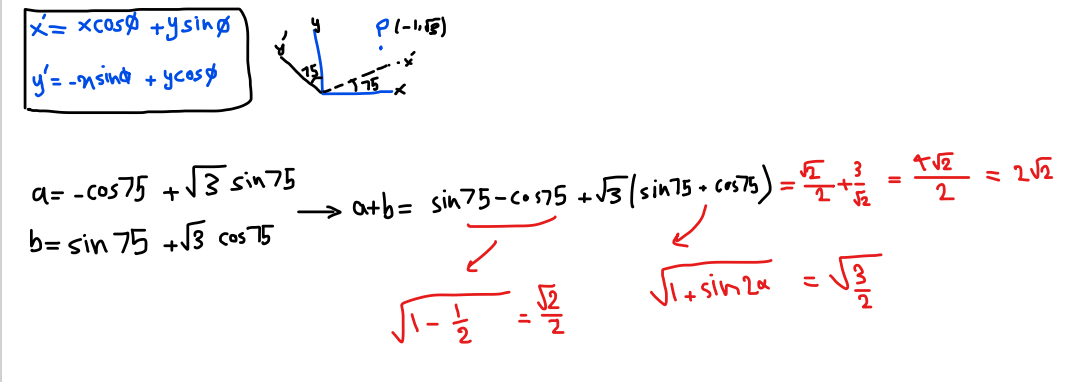 x′= xcosφ + ysinφ
y′= -xsinφ + ycosφ
y′ y P(-1,√3)
75 x′
75 x
a= -cos75 + √3 sin75
b= sin75 + √3 cos75
→ a+b= sin75-cos75 + √3(sin75 + cos75) = √2/2 + 3/√2 = 4√2/2 = 2√2
√(1 - 1/2) = √2/2
√(1 + sin2α) = √(3/2)